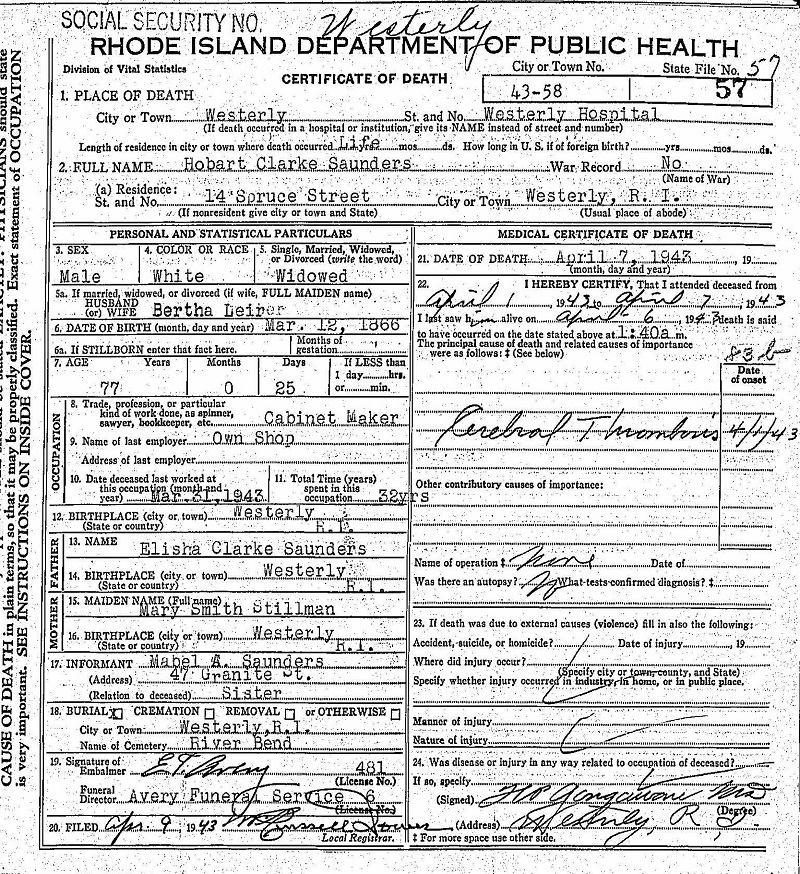 SOCIAL SECURITY NO. Westerly
RHODE ISLAND DEPARTMENT OF PUBLIC HEALTH
Division of Vital Statistics
CERTIFICATE OF DEATH
City or Town No. 43-58
State File No. 57
57
1. PLACE OF DEATH
City or Town Westerly St. and No. Westerly Hospital
(If death occurred in a hospital or institution, give its NAME instead of street and number)
Length of residence in city or town where death occurred Life mos. ds. How long in U. S. if of foreign birth? yrs. mos. ds.
2. FULL NAME Hobart Clarke Saunders War Record No
(Name of War)
(a) Residence: St. and No. 14 Spruce Street City or Town Westerly, R. I.
(If nonresident give city or town and State) (Usual place of abode)
PERSONAL AND STATISTICAL PARTICULARS
3. SEX Male
4. COLOR OR RACE White
5. Single, Married, Widowed, or Divorced (write the word) Widowed
5a. If married, widowed, or divorced (if wife, FULL MAIDEN name)
HUSBAND (or) WIFE Bertha
6. DATE OF BIRTH (month, day and year) Mar. 12, 1866
6a. If STILLBORN enter that fact here. Months of gestation
7. AGE Years Months Days If LESS than
1 day hrs.
77 0 25 or min.
OCCUPATION
8. Trade, profession, or particular
kind of work done, as spinner,
sawyer, bookkeeper, etc. Cabinet Maker
9. Name of last employer Own Shop
Address of last employer
10. Date deceased last worked at
this occupation (month and
year) Mar. 31, 1943
11. Total Time (years)
spent in this
occupation 32yrs
12. BIRTHPLACE (city or town) Westerly
(State or country) R.I.
FATHER
13. NAME
Elisha Clarke Saunders
14. BIRTHPLACE (city or town) Westerly
(State or country) R.I.
MOTHER
15. MAIDEN NAME (Full name)
Mary Smith Stillman
16. BIRTHPLACE (city or town) Westerly
(State or country) R.I.
17. INFORMANT Mabel A. Saunders
(Address) 47 Granite St.
(Relation to deceased) Sister
18. BURIAL X CREMATION REMOVAL or OTHERWISE
City or Town Westerly, R.I.
Name of Cemetery River Bend
19. Signature of Embalmer E.T. Avery 481
(License No.)
Funeral Director Avery Funeral Service 6
(License No.)
20. FILED Apr. 9, 1943 Russell
Local Registrar.
MEDICAL CERTIFICATE OF DEATH
21. DATE OF DEATH April 7, 1943, 19
(month, day and year)
22. I HEREBY CERTIFY, That I attended deceased from
April 1 1943 to April 7, 1943
I last saw him alive on April 6 1943 death is said
to have occurred on the date stated above at 1:40a m.
The principal cause of death and related causes of importance
were as follows: ‡ (See below)
83 b
Date of onset
Cerebral Thrombosis 4/1/43
Other contributory causes of importance:
Name of operation ‡ None Date of
Was there an autopsy? What tests confirmed diagnosis? ‡
23. If death was due to external causes (violence) fill in also the following:
Accident, suicide, or homicide? Date of injury, 19
Where did injury occur?
(Specify city or town, county, and State)
Specify whether injury occurred in industry, in home, or in public place.
Manner of injury
Nature of injury
24. Was disease or injury in any way related to occupation of deceased?
If so, specify
(Signed) MD
(Degree)
(Address) Westerly, R I.
‡ For more space use other side.
CAUSE OF DEATH in plain terms, so that it may be properly classified. Exact statement of OCCUPATION
is very important. SEE INSTRUCTIONS ON INSIDE COVER.
PHYSICIANS should state